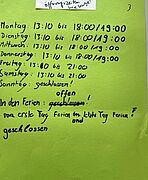 Öffnungszeiten
Montag 13:10 bis 18:00/19:00
Dienstag: 13:10 bis 18:00/19:00
Mittwoch: 13:10 bis 18:00/19:00
Donnerstag: 13:10 bis 18:00/19:00
Freitag: 13:10 bis 21:00
Samstag: 13:10 bis 21:00
Sonntag: geschlossen!
offen
In den Ferien: geschlossen!
vom erste Tag Ferien bis letzte Tag Ferien!
und
geschlossen